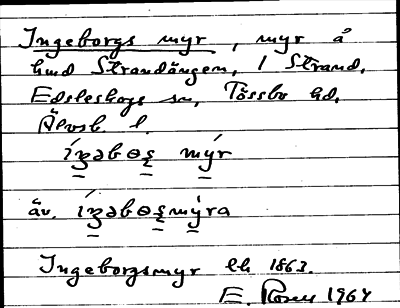 Ingeborgs myr, myr å
hmd Strandängen, 1 Strand,
Edsleskogs sn, Tössbo hd,
Älvsb. l.
íŋəbɵrs mýr
äv. íŋəbɵrsmýra
Ingeborgsmyr lk 1863.
E. Rosen 1964